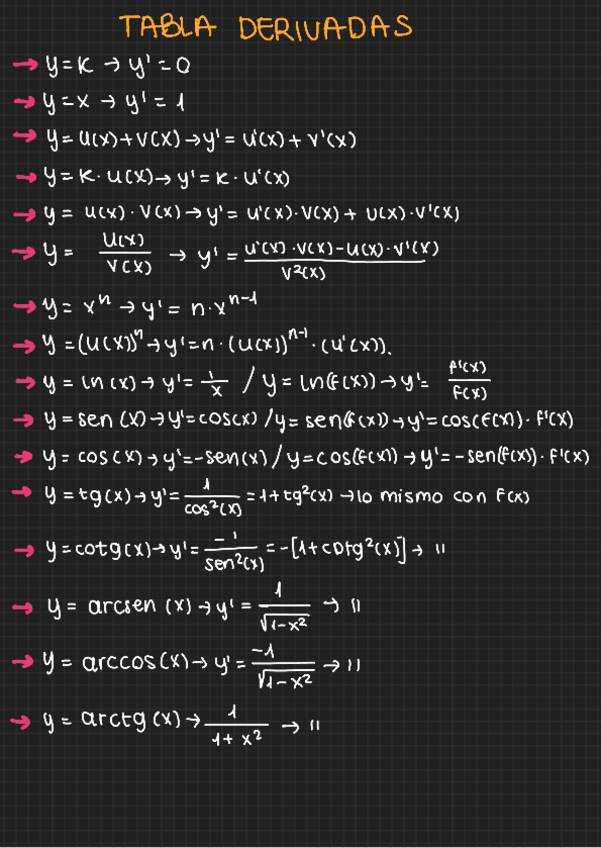 TABLA DERIVADAS
→ y=K → y'=0
→ y=x → y'=1
→ y=u(x)+v(x) → y'=u'(x)+v'(x)
→ y=K·u(x) → y'=K·u'(x)
→ y=u(x)·v(x) → y'=u'(x)·v(x)+u(x)·v'(x)
→ y=u(x)/v(x) → y'=(u'(x)·v(x)-u(x)·v'(x))/v²(x)
→ y=xⁿ → y'=n·xⁿ⁻¹
→ y=(u(x))ⁿ → y'=n·(u(x))ⁿ⁻¹·(u'(x)).
→ y=ln(x) → y'=1/x / y=ln(f(x)) → y'=f'(x)/f(x)
→ y=sen(x) → y'=cos(x) / y=sen(f(x)) → y'=cos(f(x))·f'(x)
→ y=cos(x) → y'=-sen(x) / y=cos(f(x)) → y'=-sen(f(x))·f'(x)
→ y=tg(x) → y'=1/cos²(x)=1+tg²(x) → lo mismo con f(x)
→ y=cotg(x) → y'=-1/sen²(x)=-[1+cotg²(x)] → ıı
→ y=arcsen(x) → y'=1/√(1-x²) → ıı
→ y=arccos(x) → y'=-1/√(1-x²) → ıı
→ y=arctg(x) → 1/(1+x²) → ıı